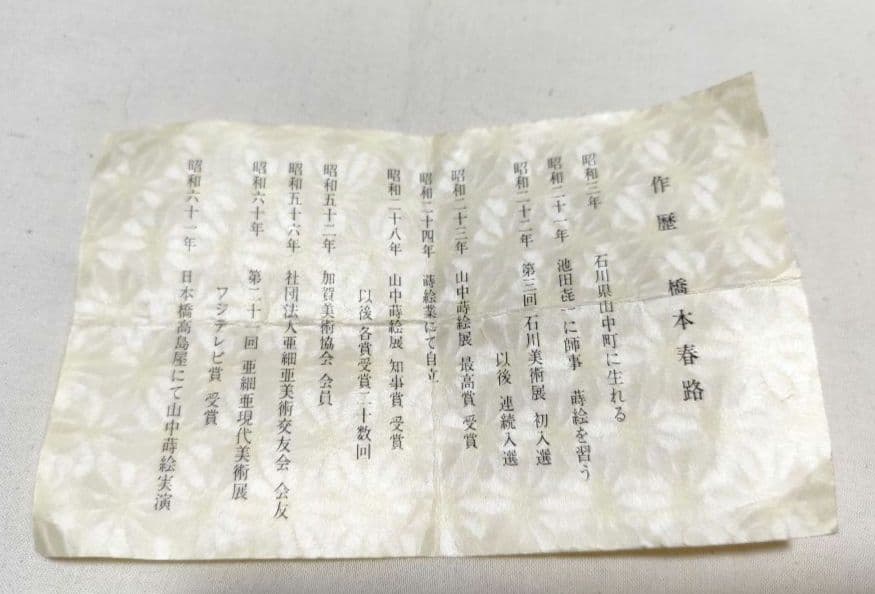 作歴 橋本春路
昭和三年 石川県山中町に生れる
昭和二十一年 池田㐂一に師事 蒔絵を習う
昭和二十二年 第三回 石川美術展 初入選
以後 連続入選
昭和二十三年 山中蒔絵展 最高賞 受賞
昭和二十四年 蒔絵業にて自立
昭和二十八年 山中蒔絵展 知事賞 受賞
以後 各賞受賞二十数回
昭和五十二年 加賀美術協会 会員
昭和五十六年 社団法人亜細亜美術交友会 会友
昭和六十年 第二十一回 亜細亜現代美術展
フジテレビ賞 受賞
昭和六十一年 日本橋高島屋にて山中蒔絵実演